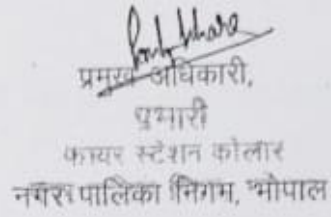 प्रमुख अधिकारी,
प्रभारी
फायर स्टेशन कोलार
नगर पालिका निगम, भोपाल